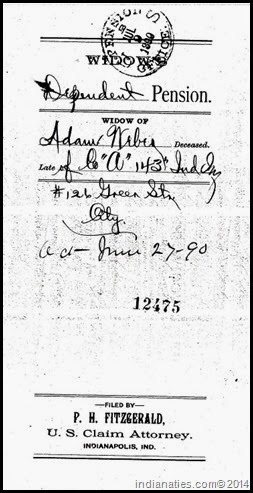 PENSION OFFICE
WIDOW'S
Dependent Pension.
WIDOW OF
Adam Deceased.
Late of Co "A" 143" Ind Inf
#126 Green Str
City.
act June 27-90
12475
FILED BY
P. H. FITZGERALD,
U. S. Claim Attorney.
INDIANAPOLIS, IND.
indianaties.com©2014